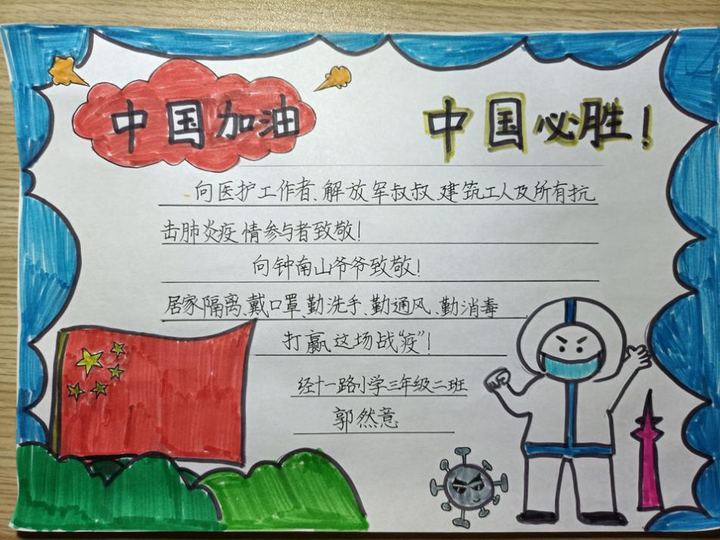 中国加油
中国必胜！
向医护工作者、解放军叔叔、建筑工人及所有抗
击肺炎疫情参与者致敬！
向钟南山爷爷致敬！
居家隔离、戴口罩、勤洗手、勤通风、勤消毒
打赢这场战“疫”！
经十一路小学三年级二班
郭然意